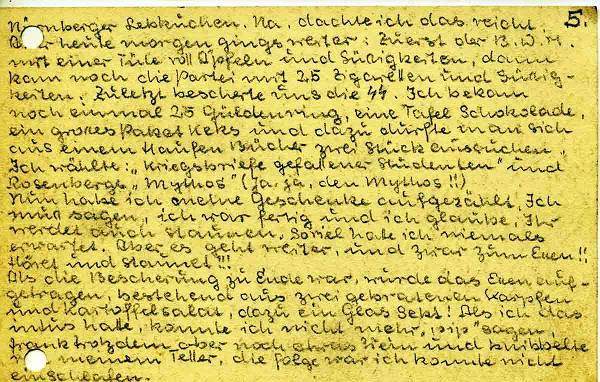 5.
Nürnberger Lebkuchen. Na, dachte ich das reicht.
Aber heute morgen gings weiter: Zuerst der B.D.M.
mit einer Tüte voll Äpfeln und Süßigkeiten, dann
kam noch die Partei mit 25 Zigaretten und Süßig-
keiten. Zuletzt bescherte uns die SS. Ich bekam
noch einmal 25 Güldenring, eine Tafel Schokolade,
ein großes Paket Keks und dazu durfte man sich
aus einem Haufen Bücher zwei Stück aussuchen.
Ich wählte: „Kriegsbriefe gefallener Studenten" und
Rosenbergs „Mythos" (ja, ja, den Mythos!!)
Nun habe ich meine Geschenke aufgezählt. Ich
muß sagen, ich war fertig und ich glaube, Ihr
werdet auch staunen. Soviel hatte ich niemals
erwartet. Aber es geht weiter, und zwar zum Essen!!
Höret und staunet!!!
Als die Bescherung zu Ende war, wurde das Essen auf-
getragen, bestehend aus zwei gebratenen Karpfen
und Kartoffelsalat, dazu ein Glas Sekt! Als ich das
intus hatte, konnte ich nicht mehr „pip" sagen,
trank trotzdem aber noch etwas Wein und knibbelte
meinem Teller, die Folge war ich konnte nicht
einschlafen.